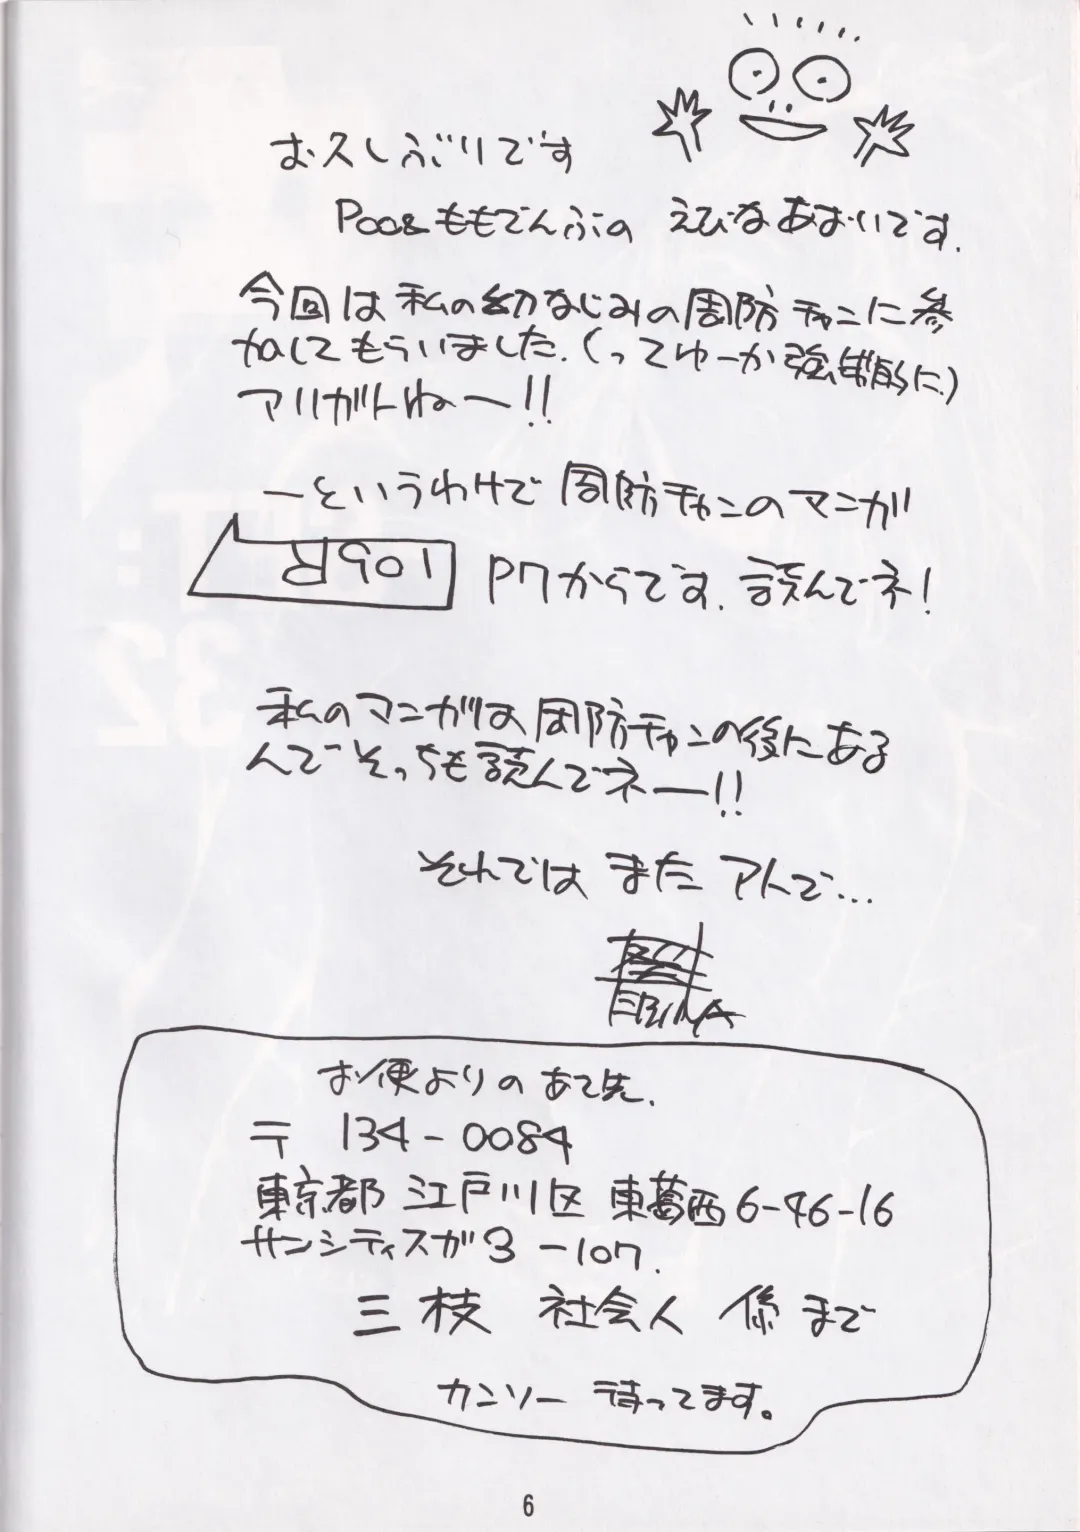 お久しぶりです
Poo&ももでんぶの えびなあおいです.
今回は 私の幼なじみの周防チャンに参
加してもらいました.(ってゆーか強制的に)
アリガトねー!!
ーというわけで 周防チャンのマンガ
P7からです. 読んでネ!
私のマンガは周防チャンの後にある
んでそっちも読んでネー!!
それでは また アトで…
EBINA
お便よりの あて先.
〒 134-0084
東京都 江戸川区 東葛西6-46-16
サンシティスガ3 -107.
三枝 社会人 係まで
カンソー 待ってます。
6